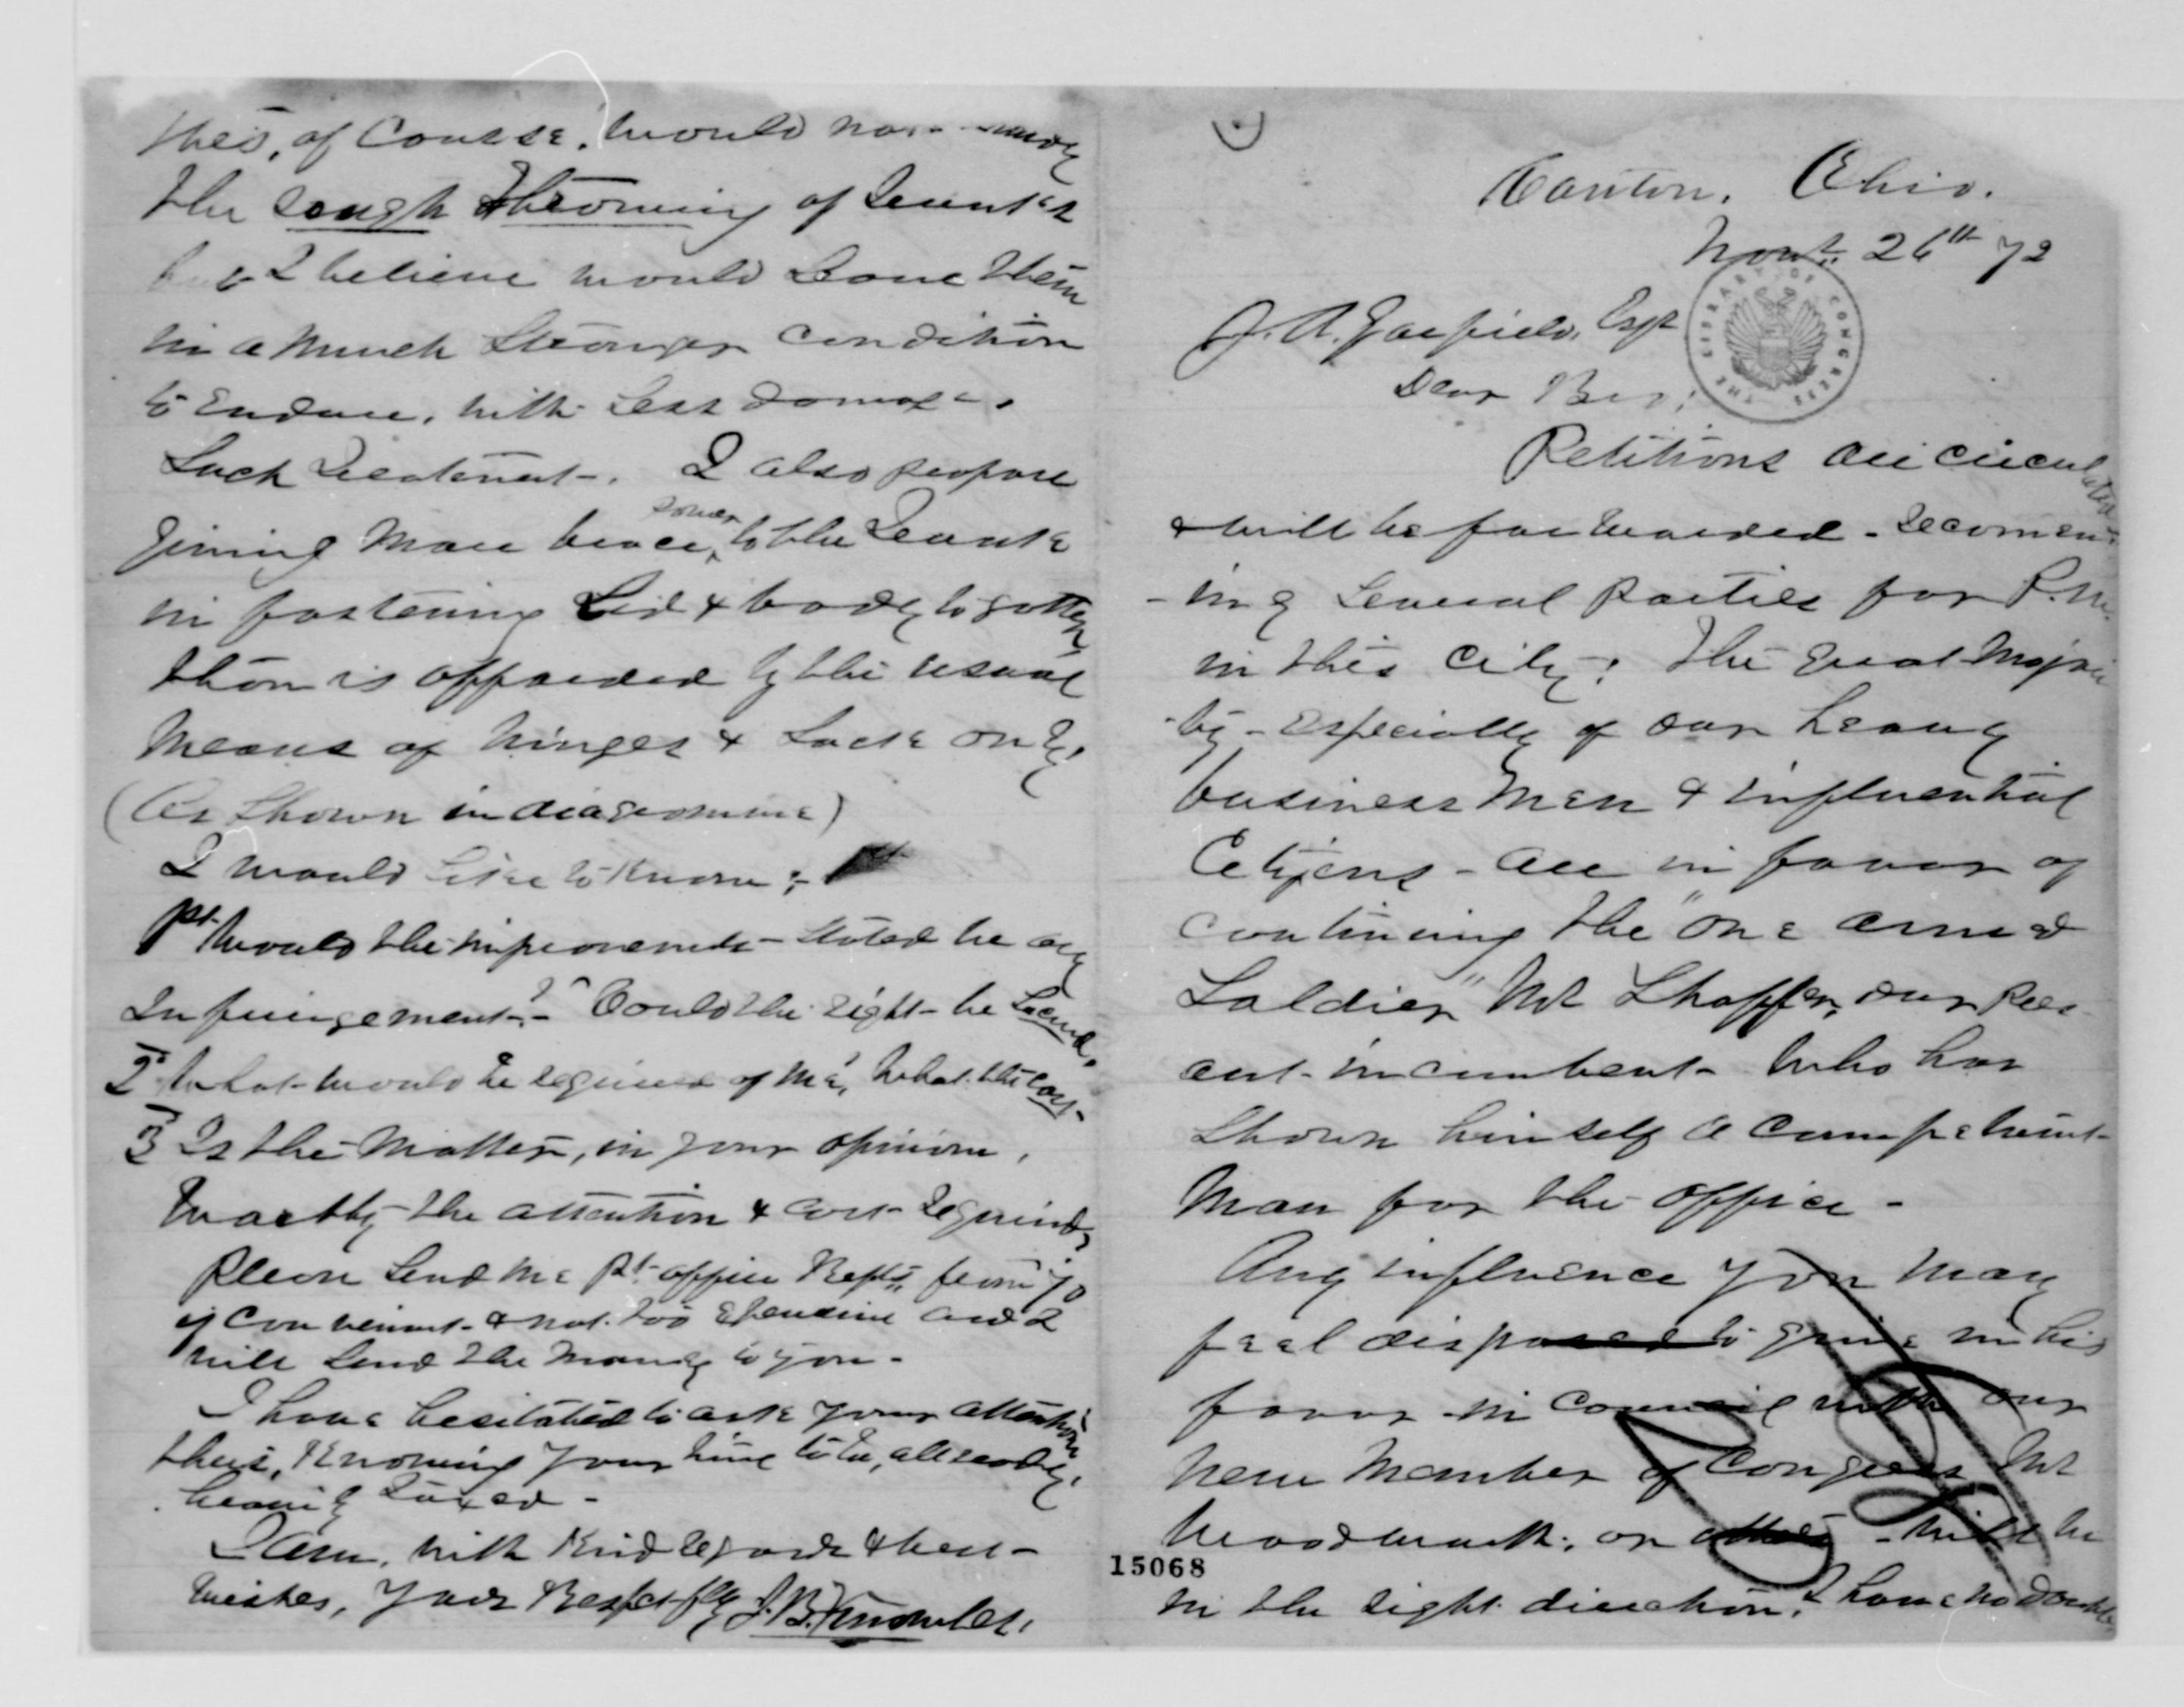 Canton. Ohio.
Novr. 26th 72
THE LIBRARY OF CONGRESS
J. A. Garfield, Esqr
Dear Bro:
Petitions are circulated
& will be forwarded - recomend-
-ing several parties for P.M.
in this City; The great Majori
-ty - especially of our heavy
business Men & influential
Citizens - are in favor of
continuing the "one armed
Soldier" Mr Shaffer, our Pres
ent incumbent - who has
shown himself a competent
Man for the office -
Any influence you may
feel disposed to give in his
favor in council with our
new Member of Congress Mr
Woodworth, or others - will be
in the right direction, I have no doubt
15068
this, of course, would not
the rough throwing of Trunks
but I believe would leave them
in a much stronger condition
to endure, with less damage,
such treatment. I also propose
giving more brace power to the Trunk
in fastening Lid & body together
than is afforded by the usual
means of hinges & Lock only,
(As shown in diagramme)
I would like to know;
1st Would the improvements stated be any
Infringement? Could the right be secured,
2 What would be required of me, What the cost
3 Is the Matter, in your opinion,
worthy the attention & cost required,
Please send me Pt. office Repts, from 70
if convenient & not too expensive and I
will send the money to you -
I have hesitated to ask your attention
thus, Knowing your time to be, allready,
heavily taxed -
I am, with Kind regards & best
wishes, Your Respctfly J. B. Knowles,